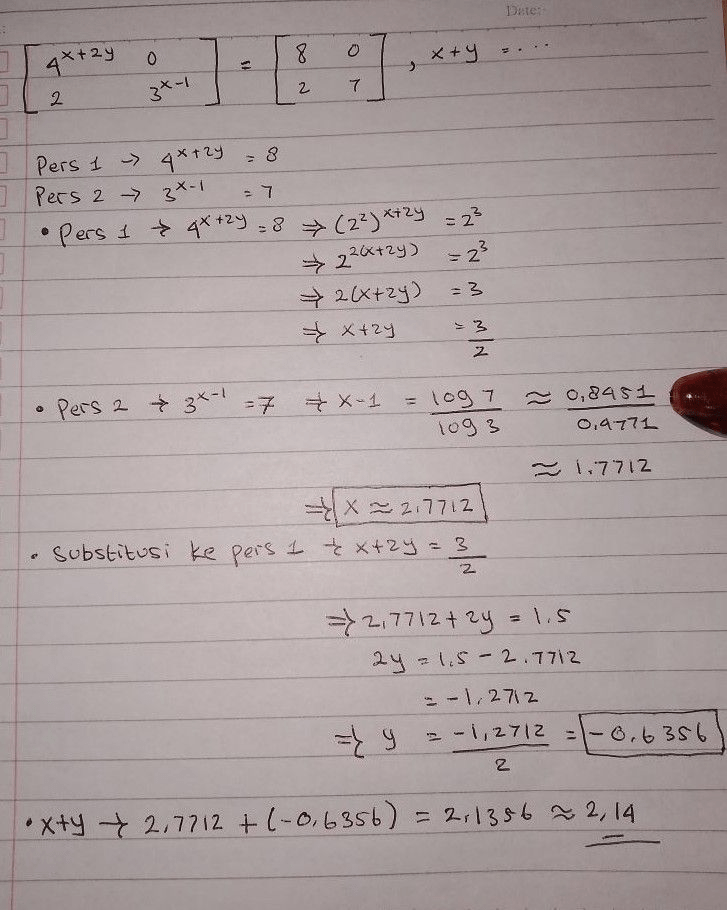 Date:
[ 4^(x+2y) 0 ; 2 3^(x-1) ] = [ 8 0 ; 2 7 ] , x+y = ...
Pers 1 → 4^(x+2y) = 8
Pers 2 → 3^(x-1) = 7
• Pers 1 → 4^(x+2y) = 8 ⇒ (2²)^(x+2y) = 2³
⇒ 2^(2(x+2y)) = 2³
⇒ 2(x+2y) = 3
⇒ x+2y = 3/2
• Pers 2 → 3^(x-1) = 7 → x-1 = log 7 / log 3 ≈ 0,8451 / 0,4771
≈ 1,7712
⇒ x ≈ 2,7712
• Substitusi ke pers 1 → x+2y = 3/2
⇒ 2,7712 + 2y = 1.5
2y = 1,5 - 2.7712
= -1,2712
⇒ y = -1,2712 / 2 = -0,6356
• x+y → 2,7712 + (-0,6356) = 2,1356 ≈ 2,14